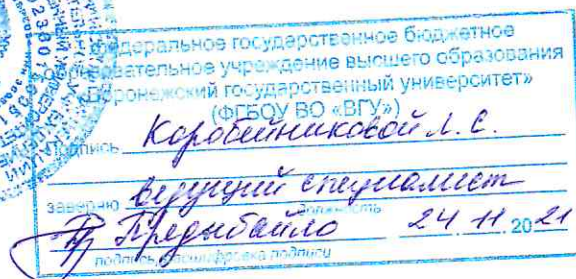 федеральное государственное бюджетное
образовательное учреждение высшего образования
«Воронежский государственный университет»
(ФГБОУ ВО «ВГУ»)
Подпись Коробейниковой Л. С.
заверяю ведущий специалист
должность
24 11 2021
подпись, расшифровка подписи